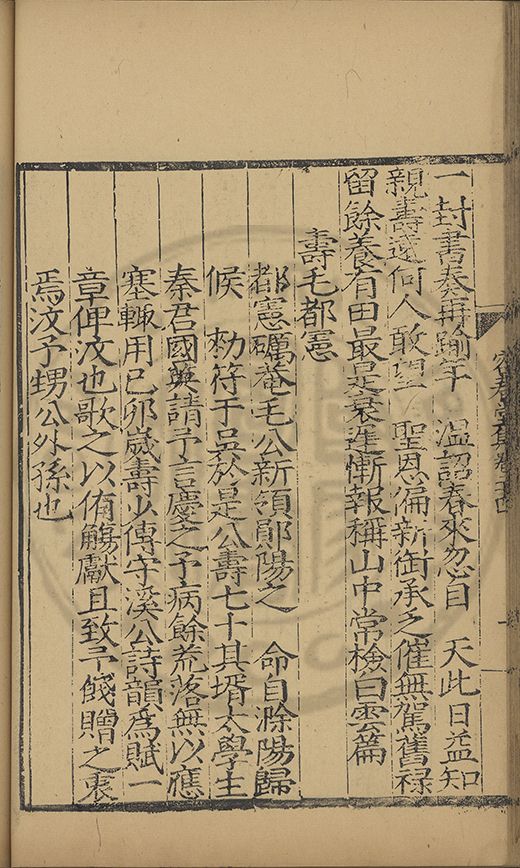 一封書奏再踰年　溫詔春來忽自　天此日益知
親壽遠何人敢望　聖恩偏新銜承乏催無駕舊祿
留餘養有田最是衰遲慚報稱山中常檢白雲篇
壽毛都憲
都憲礪菴毛公新領鄖陽之　命自滁陽歸
候　勑符于吳於是公壽七十其壻太學生
秦君國英請予言慶之予病餘荒落無以應
塞輙用己卯歲壽少傅守溪公詩韻爲賦一
章俾汶也歌之以侑觴獻且致予餞贈之衷
焉汶予甥公外孫也